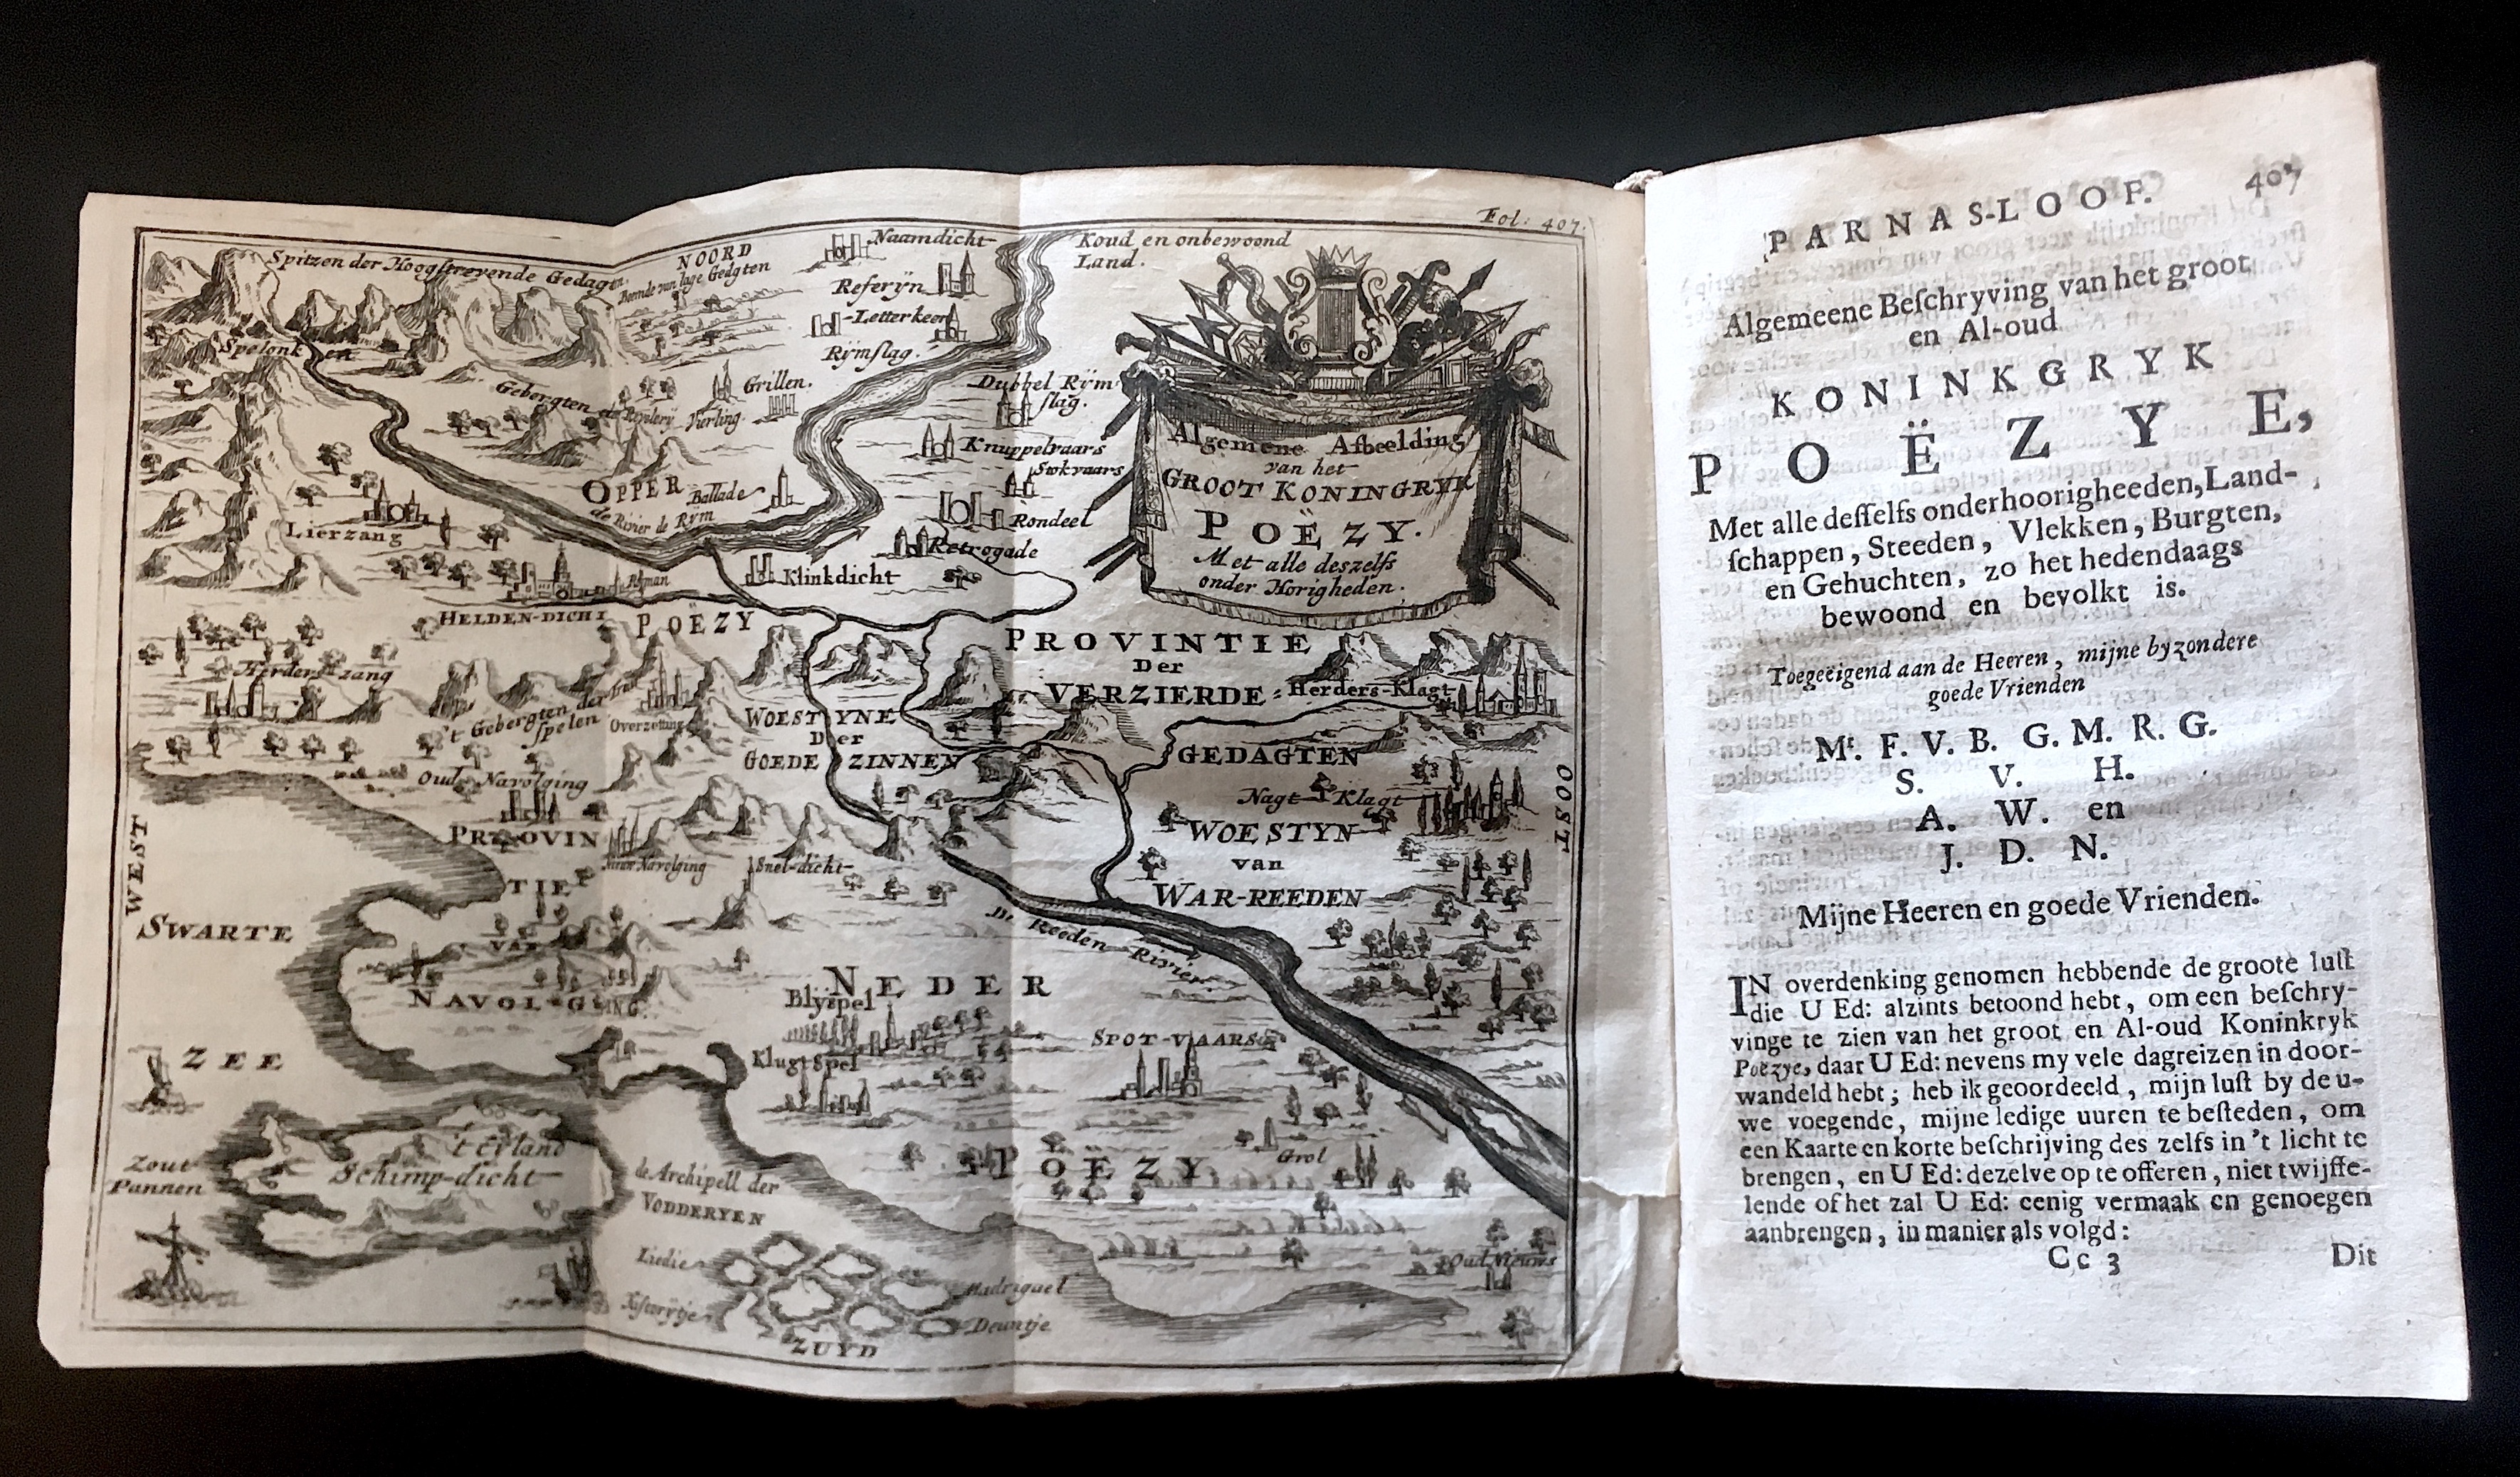 Fol: 407.
Spitzen der Hoogstrevende Gedagten
NOORD
Naamdicht
Koud en onbewoond
Land.
Referÿn
Letterkeer
Rÿmslag.
Spelonken
Gebergten
Grillen.
Dubbel Rÿm
slag.
Knuppelvaars
Stokvaars
OPPER
Ballade
de Rivier de Rÿm
Rondeel
Retrogade
Klinkdicht
Lierzang
Roman
HELDEN-DICHT
POËZY
Algemene Afbeelding
van het
GROOT KONINGRYK
POËZY.
Met alle deszelfs
onder Horigheden.
Herders zang
't Gebergten der
spelen
Overzetting
WOESTYNE
Der
GOEDE ZINNEN
PROVINTIE
Der
VERZIERDE
Herders-Klagt
GEDAGTEN
Oude Navolging
PROVIN
TIE
VAN
NAVOL-GING.
Navolging
Snel-dicht
Nagt Klagt
WOESTYN
van
WAR-REEDEN
OOST
WEST
SWARTE
ZEE
De Reeden Rivier.
NEDER
POËZY
Blÿspel
Klugt Spel
SPOT-VAARS
Grol
Zout
Pannen
't Eyland
Schimp-dicht
de Archipell der
VODDERYEN
Liedie
Madriguel
Deuntje
Oud Nieuws
ZUYD
PARNAS-LOOF. 407
Algemeene Beſchryving van het groot
en Al-oud
KONINKGRYK
POËZYE,
Met alle deſſelfs onderhoorigheeden, Land-
ſchappen, Steeden, Vlekken, Burgten,
en Gehuchten, zo het hedendaags
bewoond en bevolkt is.
Toegeëigend aan de Heeren, mijne byzondere
goede Vrienden
Mr. F. V. B. G. M. R. G.
S. V. H.
A. W. en
J. D. N.
Mijne Heeren en goede Vrienden.
IN overdenking genomen hebbende de groote luſt
die U Ed: alzints betoond hebt, om een beſchry-
vinge te zien van het groot en Al-oud Koninkryk
Poëzye, daar U Ed: nevens my vele dagreizen in door-
wandeld hebt; heb ik geoordeeld, mijn luſt by de u-
we voegende, mijne ledige uuren te beſteden, om
een Kaarte en korte beſchrijving des zelfs in 't licht te
brengen, en U Ed: dezelve op te offeren, niet twijffe-
lende of het zal U Ed: eenig vermaak en genoegen
aanbrengen, in manier als volgd:
Cc 3 Dit